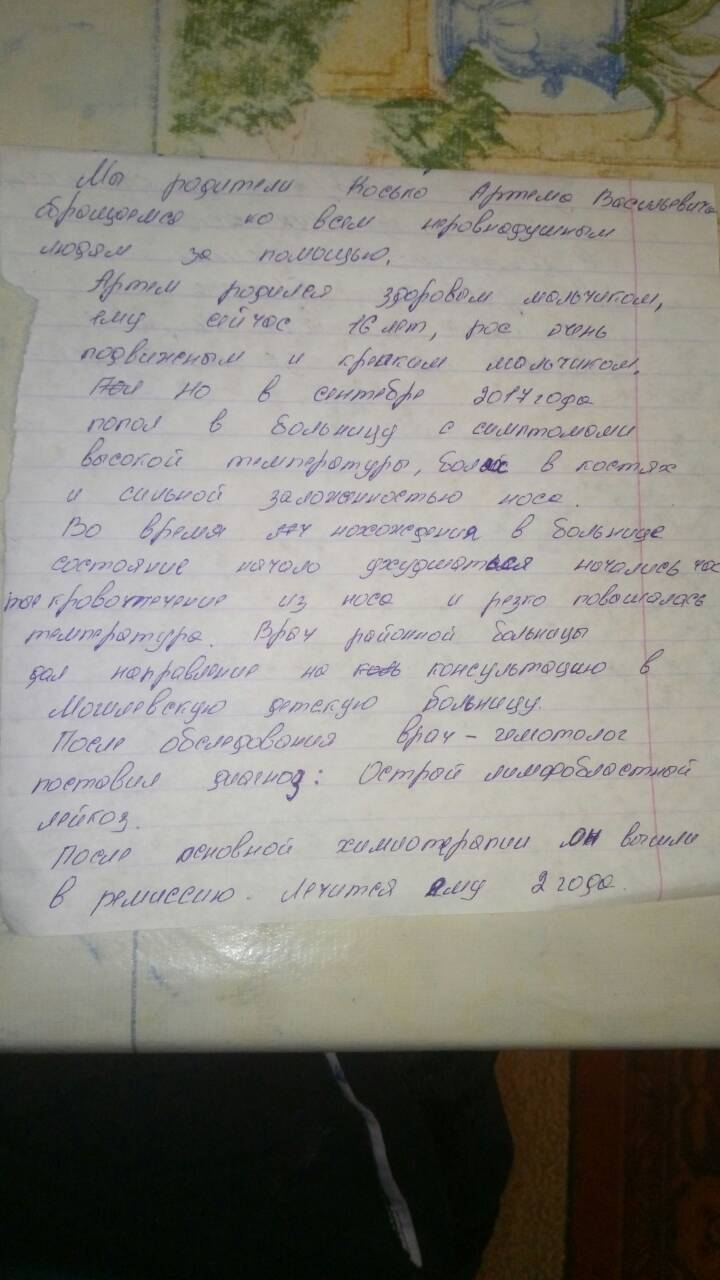 Мы родители Косько Артёма Васильевича
обращаемся ко всем неровнодушным
людям за помощью.
Артем родился здоровым мальчиком,
ему сейчас 16 лет, рос очень
подвижным и крепким мальчиком.
но в сентебре 2017 года
попал в больницу с симптомами
высокой температуры, болях в костях
и сильной заложенностью носа.
Во время нохождения в больнице
состояние начало ухудшаться начались час
тое кровотечение из носа и резко повышалась
температура. Врач районной больницы
дал направление на консультацию в
Могилевскую детскую больницу.
После обследования врач - гемотолог
поставил диагноз: Острой лимфобластный
лейкоз.
После основной химиотерапии он вышли
в ремиссию. Лечится ему 2 года.